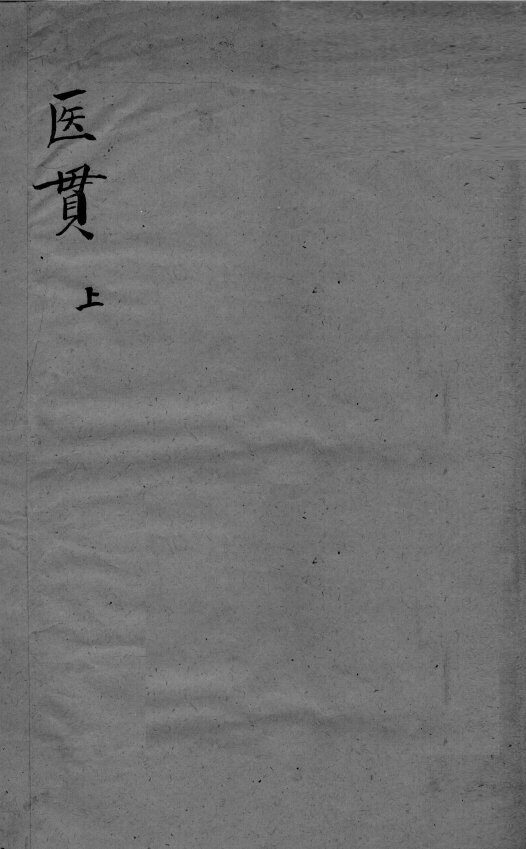 医貫
上